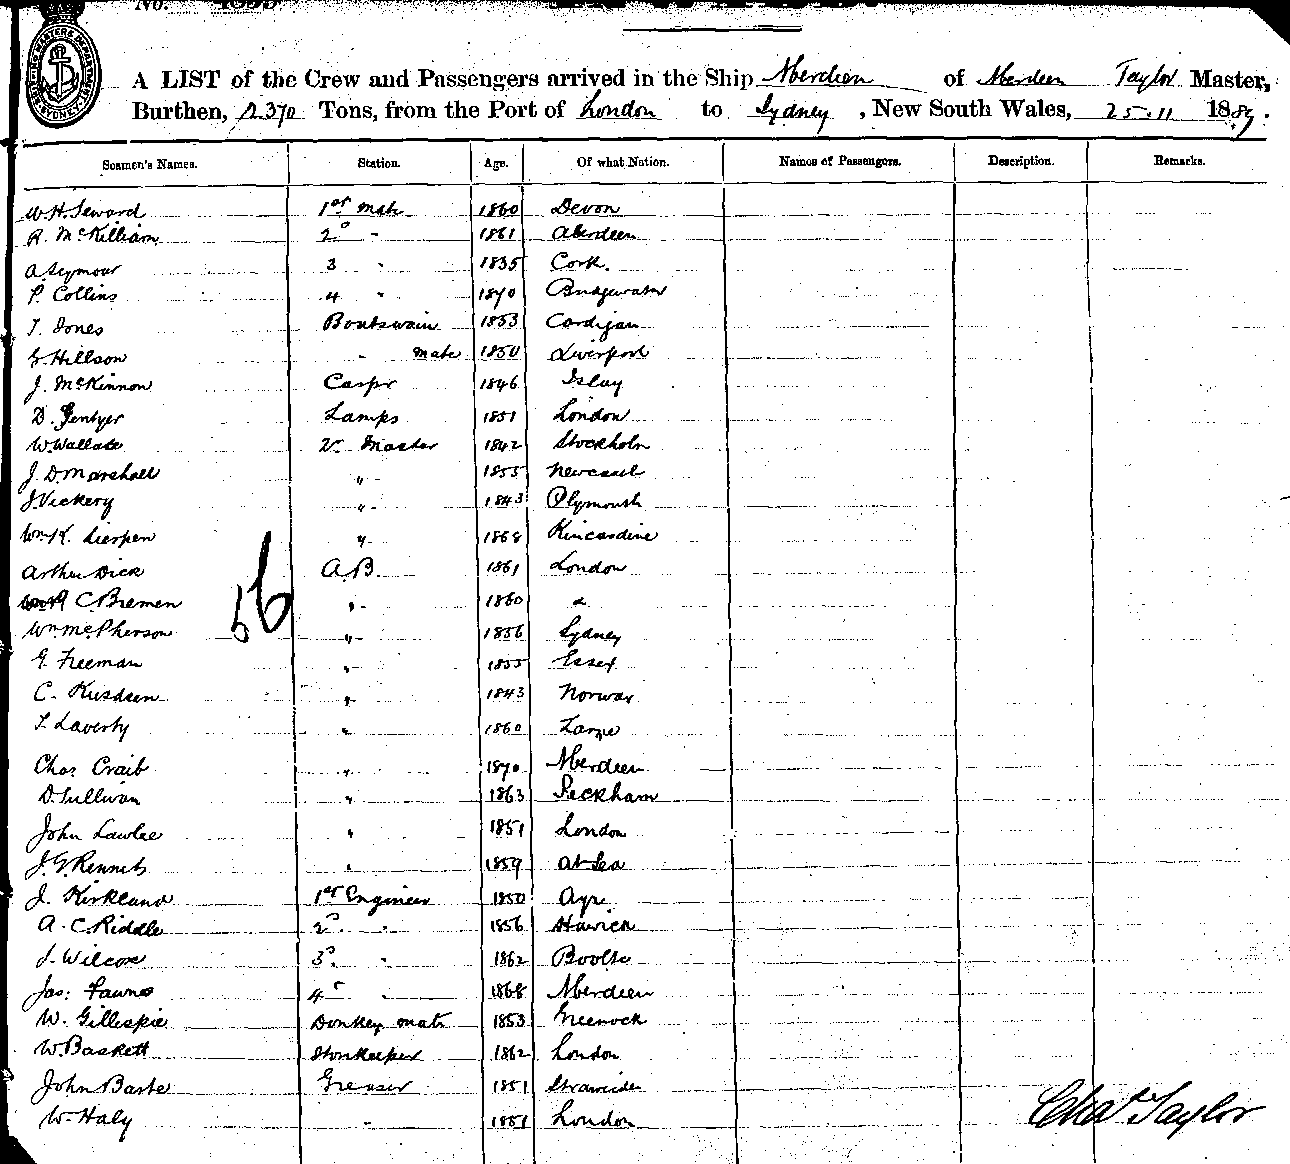 No.
A LIST of the Crew and Passengers arrived in the Ship Aberdeen of Aberdeen Taylor Master,
Burthen, 2370 Tons, from the Port of London to Sydney, New South Wales, 25.11 1889.
Seamen's Names. Station. Age. Of what Nation. Names of Passengers. Description. Remarks.
W. H. Seward 1st Mate 1860 Devon
R. McKilliam 2d " 1861 Aberdeen
A. Seymour 3 " 1835 Cork.
P. Collins 4 " 1870 Bridgewater
T. Jones Boatswain 1853 Cardigan
G. Hillson " mate 1850 Liverpool
J. McKinnon Carpr 1846 Islay
D. Lamps 1851 London
W. Wallace Qr Master 1842 Stockholm
J. D. Marshall " 1855 Newcastle
J. Vickery " 1843 Plymouth
Wm K. " 1868 Kincardine
Arthur Dick A.B. 1861 London
C Bremen " 1860 "
Wm McPherson " 1856 Sydney
G. Freeman " 1855 Essex
C. " 1843 Norway
T. Laverty " 1860 Large
Chas Craib " 1870 Aberdeen
D. Sullivan " 1863 Peckham
John Lawlee " 1851 London
J. G. " 1859 At Sea
J. Kirkland 1st Engineer 1850 Ayr
A. C. Riddle 2d " 1856 Hawick
J. Wilcox 3d " 1862 Bootle
Jas: 4th " 1868 Aberdeen
W. Gillespie Donkey man 1853 Greenock
W. Baskett Storekeeper 1862 London
John Greaser 1851
W. Haly " 1851 London
56
Chas Taylor